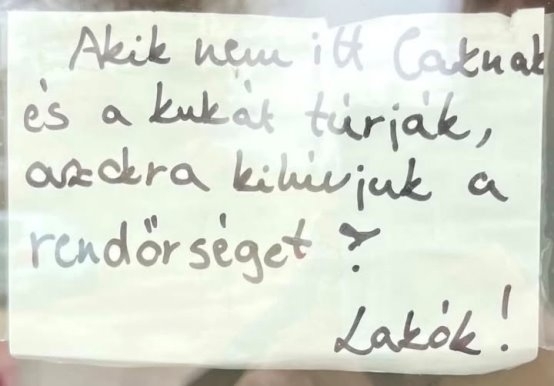 Akik nem itt Laknak
és a kukát túrják,
azokra kihívjuk a
rendőrséget ?
Lakók!